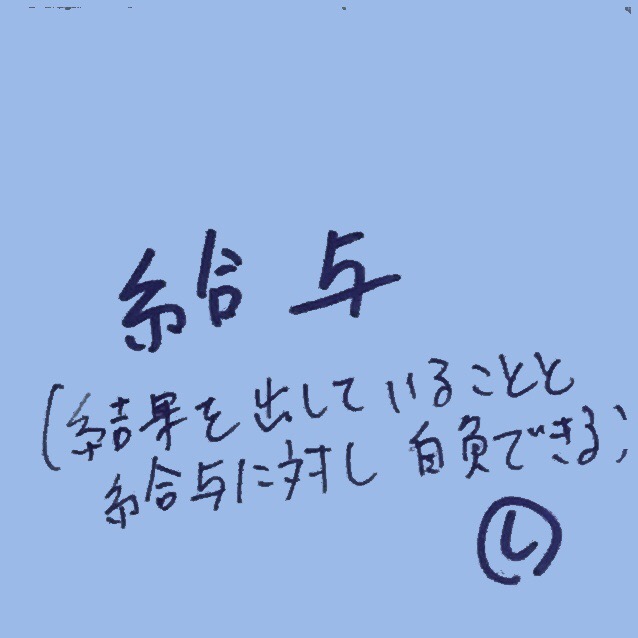 給与
(結果を出していることと
給与に対し自負できる)
Ⓛ